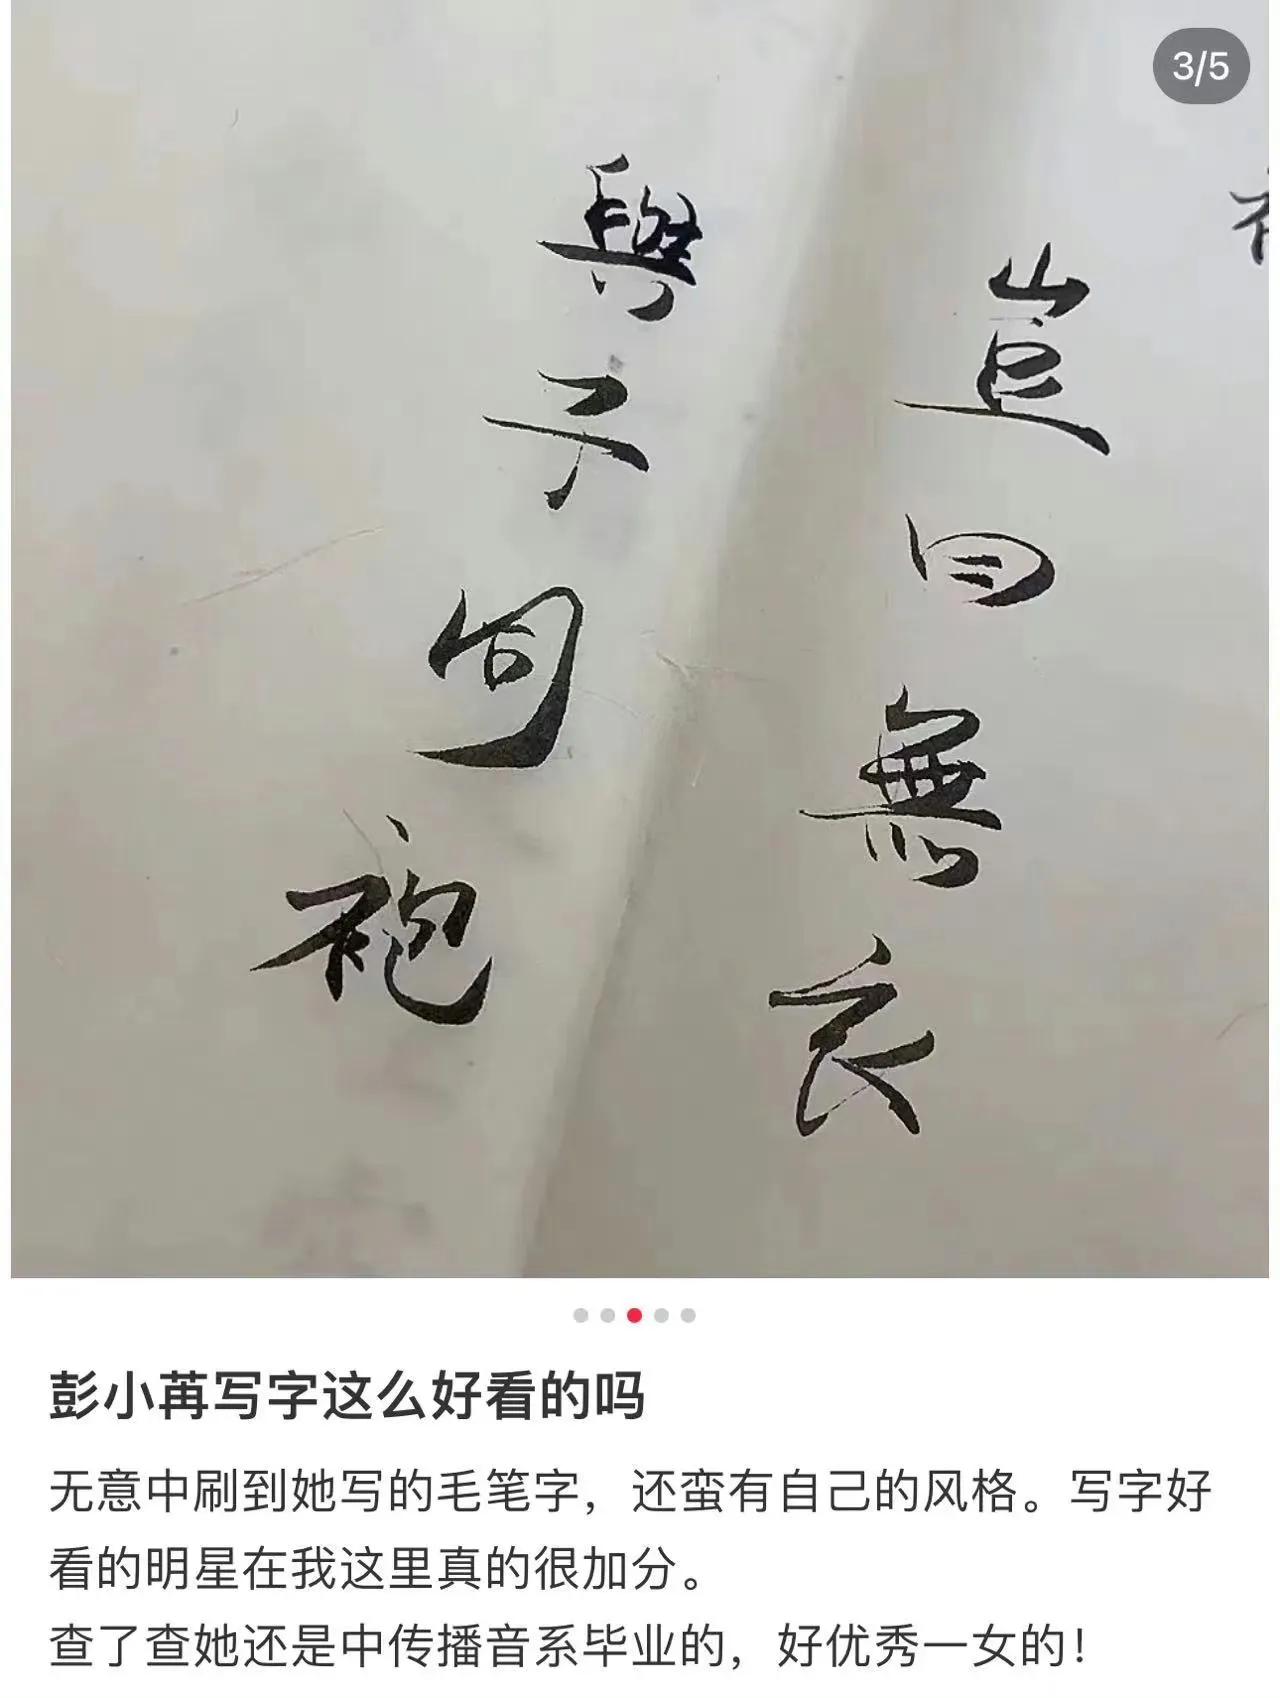 3/5
豈曰無衣
與子同袍
彭小苒写字这么好看的吗
无意中刷到她写的毛笔字，还蛮有自己的风格。写字好
看的明星在我这里真的很加分。
查了查她还是中传播音系毕业的，好优秀一女的！